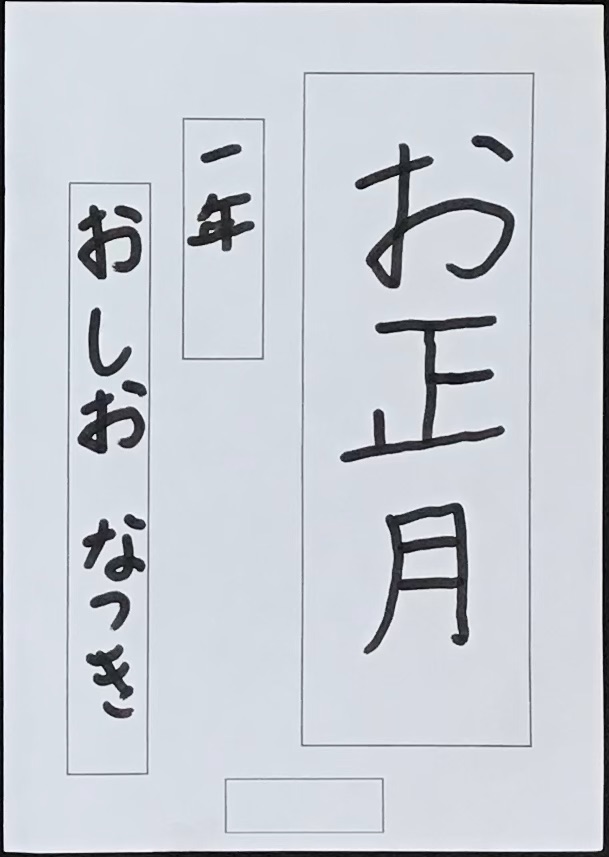 お正月
一年
おしお なつき